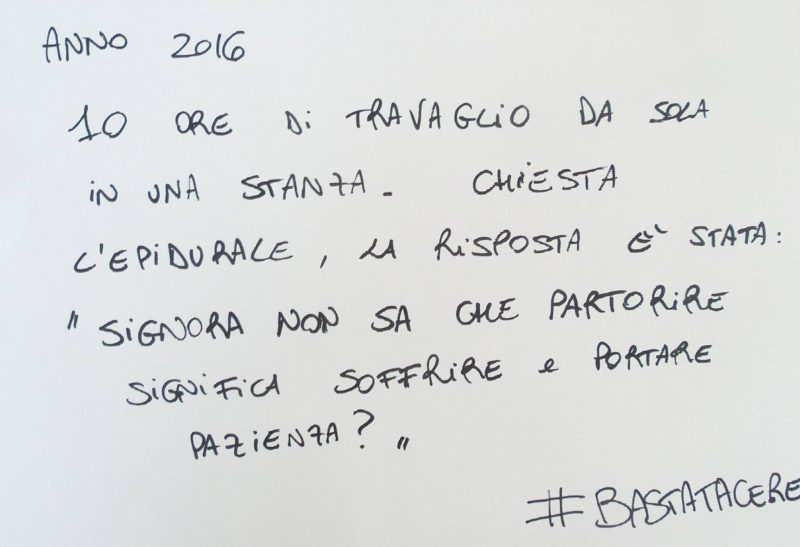 ANNO 2016
10 ORE Di TRAVAGLiO DA SOLA
iN UNA STANZA. CHiESTA
L'EPiDURALE, LA RiSPOSTA E' STATA:
" SiGNORA NON SA CHE PARTORiRE
SiGNiFiCA SOFFRiRE e PORTARE
PAZiENZA? "
#BASTATACERE